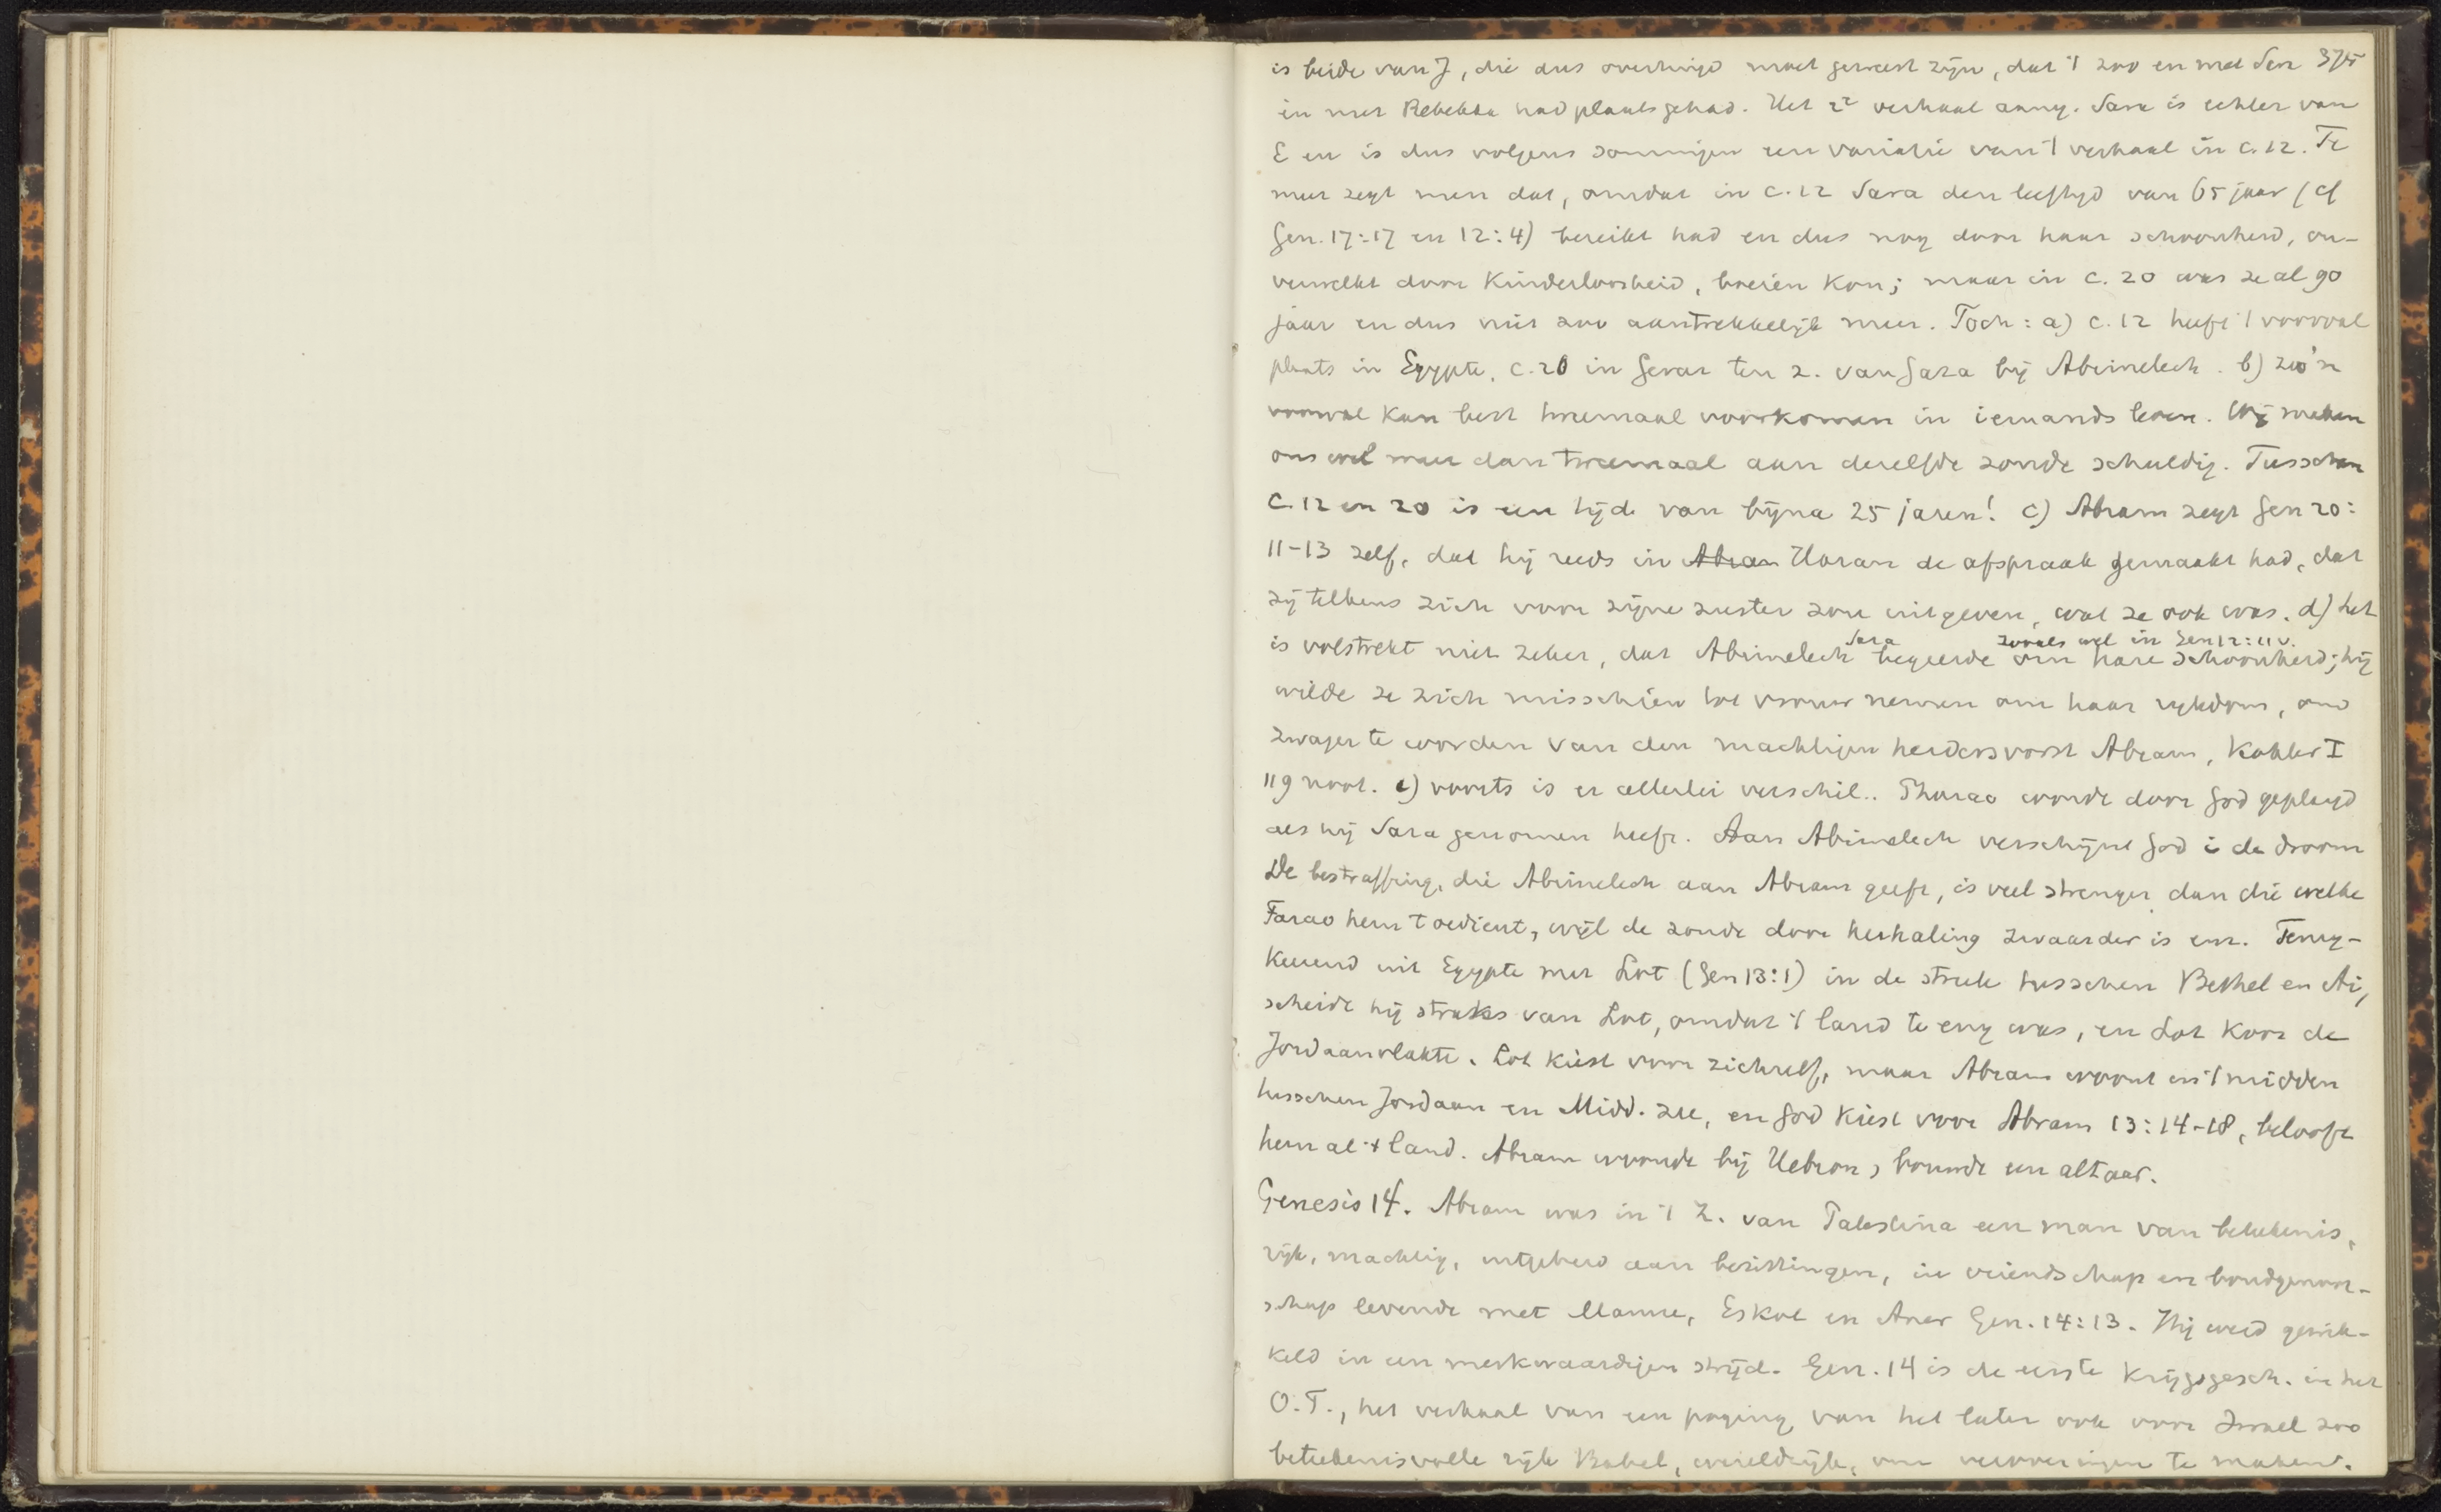 is beide van J, die dus overtuigd moet geweest zijn, dat 't zoo en met Sara 375
en met Rebekka had plaats gehad. Het 2e verhaal aang. Sara is echter van
E en is dus volgens sommigen een variatie van 't verhaal in c. 12. Te
meer zegt men dat, omdat in c. 12 Sara den leeftijd van 65 jaar (cf
Gen. 17:17 en 12:4) bereikt had en dus nog door haar schoonheid, on-
verwelkt door Kinderloosheid, boeien kon; maar in c. 20 was ze al 90
jaar en dus niet zoo aantrekkelijk meer. Toch: a) c. 12 heeft 't voorval
plaats in Egypte, c. 20 in Gerar ten z. van Gaza bij Abimelech. b) zoo'n
voorval kan best tweemaal voorkomen in iemands leven. Wij maken
ons wel meer dan tweemaal aan dezelfde zonde schuldig. Tusschen
c. 12 en 20 is een tijd van bijna 25 jaren! c) Abram zegt Gen 20:
11-13 zelf, dat hij reeds in Abran Haran de afspraak gemaakt had, dat
zij telkens zich voor zijne zuster zou uitgeven, wat ze ook was. d) het
Sara zooals wel in Gen 12:11v.
is volstrekt niet zeker, dat Abimelech begeerde om hare schoonheid; hij
wilde ze zich misschien tot vrouw nemen om haar rijkdom, om
zwager te worden van den machtigen herdersvorst Abram, Kohler I
119 noot. e) voorts is er allerlei verschil.. Pharao wordt door God geplaagd
als hij Sara genomen heeft. Aan Abimelech verschijnt God i de droom
De bestraffing, die Abimelech aan Abram geeft, is veel strenger dan die welke
Farao hem toedient, wijl de zonde door herhaling zwaarder is enz. Terug-
keerend uit Egypte met Lot (Gen 13:1) in de streek tusschen Bethel en Ai,
scheidt hij straks van Lot, omdat 't land te eng was, en Lot koos de
Jordaanvlakte. Lot kiest voor zichzelf, maar Abram woont in 't midden
tusschen Jordaan en Midd. zee, en God kiest voor Abram 13:14-18, belooft
hem al 't land. Abram woonde bij Hebron, bouwde een altaar.
Genesis 14. Abram was in 't Z. van Palestina een man van beteekenis,
rijk, machtig, uitgebreid aan bezittingen, in vriendschap en bondgenoot-
schap levende met Mamre, Eskol en Aner Gen. 14:13. Hij werd gewik-
keld in een merkwaardigen strijd. Gen. 14 is de eerste krijgsgesch. in het
O.T., het verhaal van een poging van het later ook voor Israel zoo
beteekenisvolle rijk Babel, wereldrijk, om veroveringen te maken.